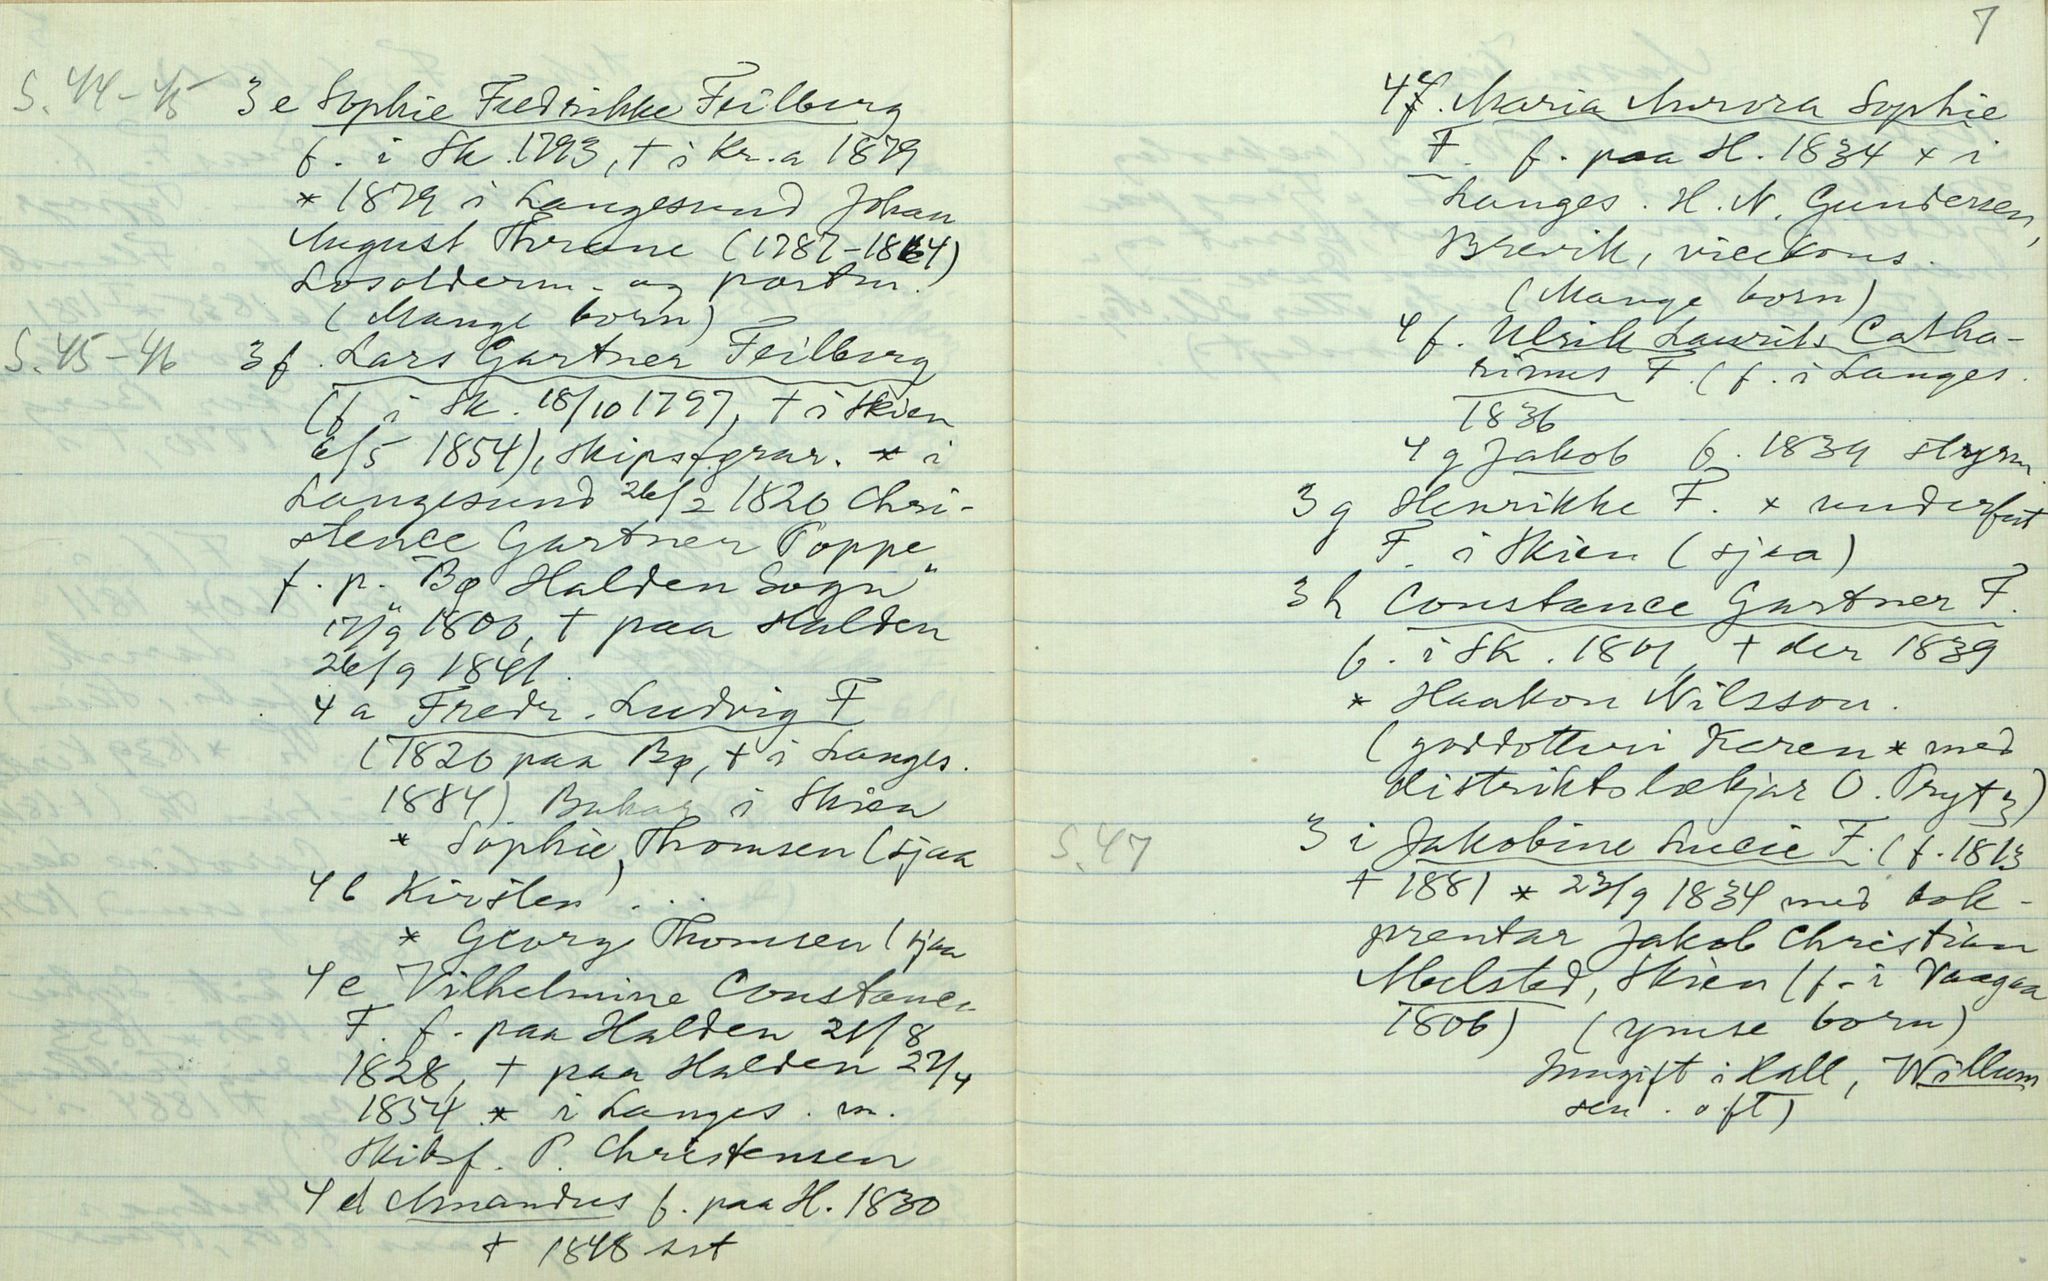 S. 44-45 3 e Sophie Fredrikke Feilberg
f. i Sk. 1793, † i Kr.a 1879
* 1879 i Langesund Johan
August Thrane (1787-1864)
Losolderm. og postm.
(Mange born)
S. 45-46 3 f. Lars Gartner Feilberg
(f. i Sk. 18/10 1797, † i Skien
6/5 1854), skipsfgrar. * i
Langesund 26/2 1820 Chri-
stence Gartner Poppe
f. p. "Bø Halden Sogn"
17/9 1800, † paa Halden
26/9 1841.
4 a Fredr. Ludvig F
(1820 paa Bø, † i Langes.
1884). Bakar i Skien
* Sophie Thomsen (sjaa
4 b Kirsten ...)
* Georg Thomsen (sjaa
4 c Vilhelmine Constance
F. f. paa Halden 21/8
1828, † paa Halden 27/4
1854 * i Langes. m.
Skibsf. P. Christensen
4 d Amandus f. paa H. 1830
† 1848
7
4 e. Maria Aurora Sophie
F. f. paa H. 1834 * i
Langes. H. N. Gundersen,
Brevik, vicekons.
(Mange born)
4 f. Ulrik Laurits Catha-
rinus F. (f. i Langes.
1836
4 g Jakob f. 1839 styrm.
3 g Henrikke F. * underfut
F. i Skien (sjaa)
3 h Constance Gartner F.
f. i Sk. 1801, † der 1839
* Haakon Nilsson.
(goddotteri Karen * med
distriktslækjar O. Prytz)
S. 47 3 i Jakobine Lucie F. (f. 1813
† 1881 * 23/9 1834 med bok-
prentar Jakob Christian
Melsted, Skien (f. i Vaagaa
1806) (ymse born)
Inngift i Kall, Willum
sen. oft)